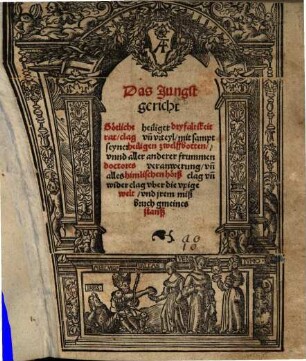 Das Jungst
gericht
Götlicher heiliger dryfaltikeit
rat/clag vn̄ vrteyl/mit sampt
seyner heiligen zwelffbotten/
vnnd aller anderer frummen
doctores verantwortung/vn̄
alles himlischen hörß clag vn̄
wider clag vber die vppige
welt/vnd irem miß
bruch gmeines
stantz